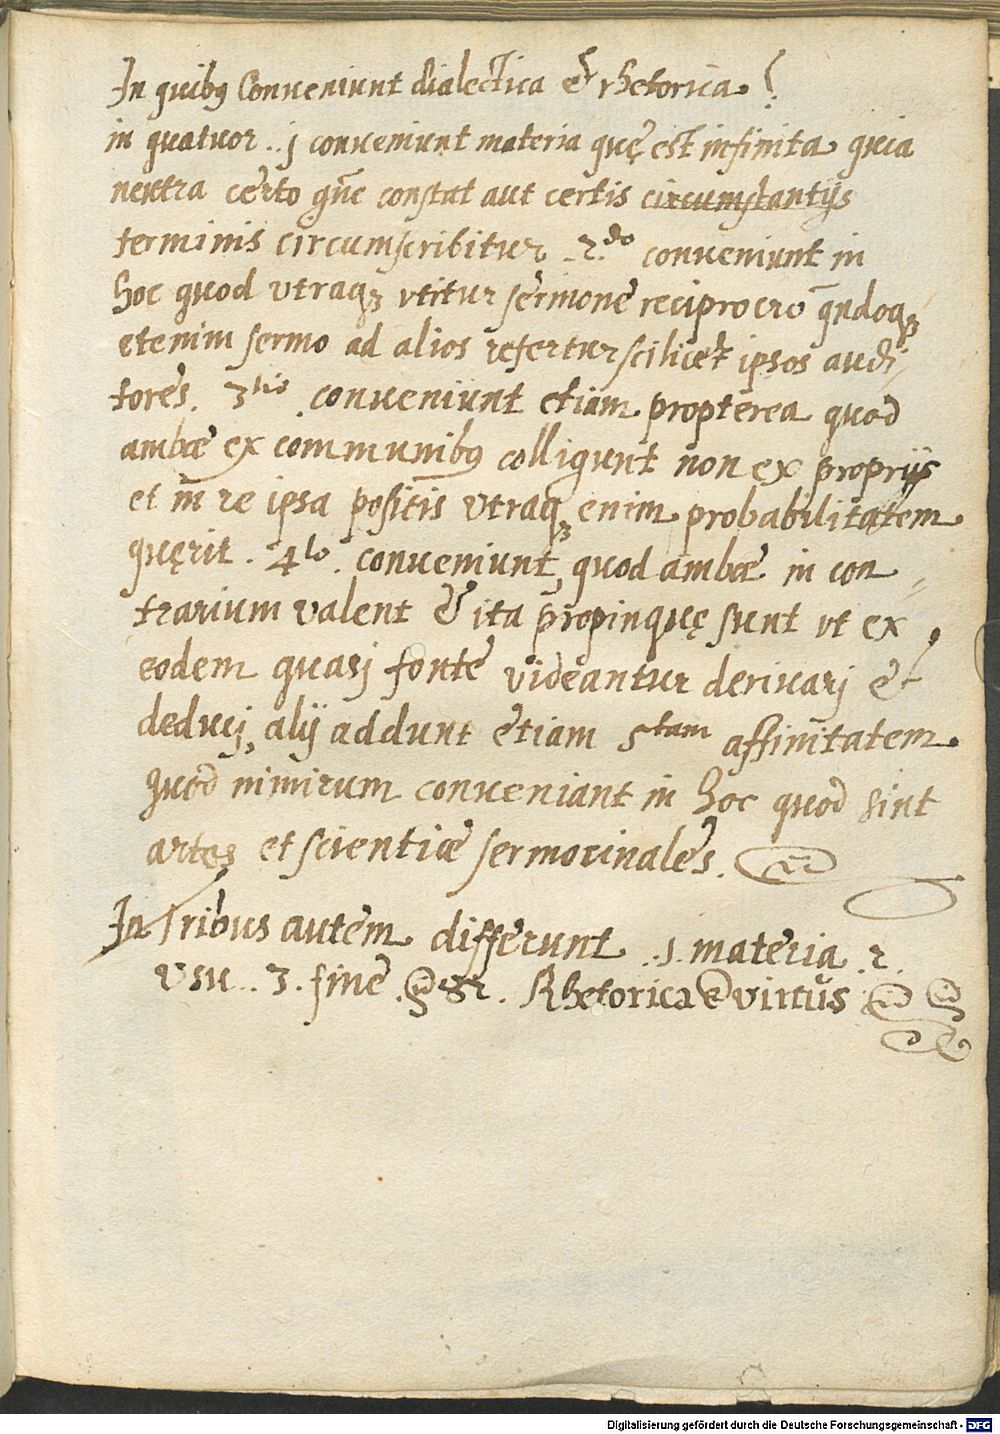 In quibꝰ Conueniunt dialectica et rhetorica. ?
in quatuor .. j conueniunt materia quę est infinita quia
neutra certo gn̄e constat aut certis circumstantijs
terminis circumscribitur. 2.do conueniunt in
hoc quod vtraqꝫ vtitur sermone reciproco qn̄doqꝫ
etenim sermo ad alios refertur scilicet ipsos audi-
tores. 3tio. conueniunt etiam propterea quod
ambæ ex communibꝰ colligunt non ex proprijs
et in re ipsa positis vtraqꝫ enim probabilitatem
quęrit. 4to. conueniunt, quod ambæ in con-
trarium valent & ita propinquę sunt vt ex
eodem quasj fonte videantur deriuarj et
deducj, alij addunt etiam 5tam affinitatem
quod nimirum conueniant in hoc quod sint
artes et scientiæ sermocinales.
In Tribus autem differunt .. 1. materia. 2.
vsu .. 3. fine. Rhetorica virtus
Digitalisierung gefördert durch die Deutsche Forschungsgemeinschaft - DFG